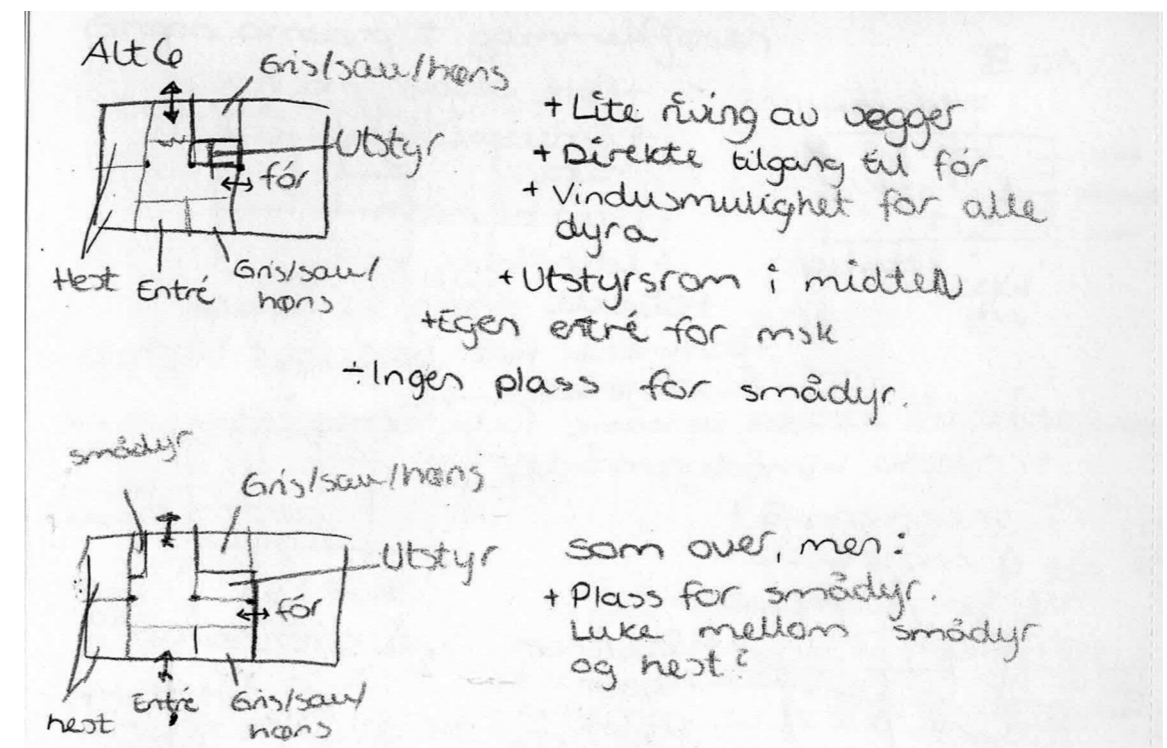 Alt 6
Gris/sau/høns
Utstyr
fór
Hest
Entré
Gris/sau/
høns
+ Lite riving av vegger
+ Direkte tilgang til fór
+ Vindusmulighet for alle
dyra
+ Utstyrsrom i midten
+ Egen entré for msk
÷ Ingen plass for smådyr.
smådyr
Gris/sau/høns
Utstyr
fór
hest
Entré
Gris/sau/
høns
Som over, men:
+ Plass for smådyr.
Luke mellom smådyr
og hest?